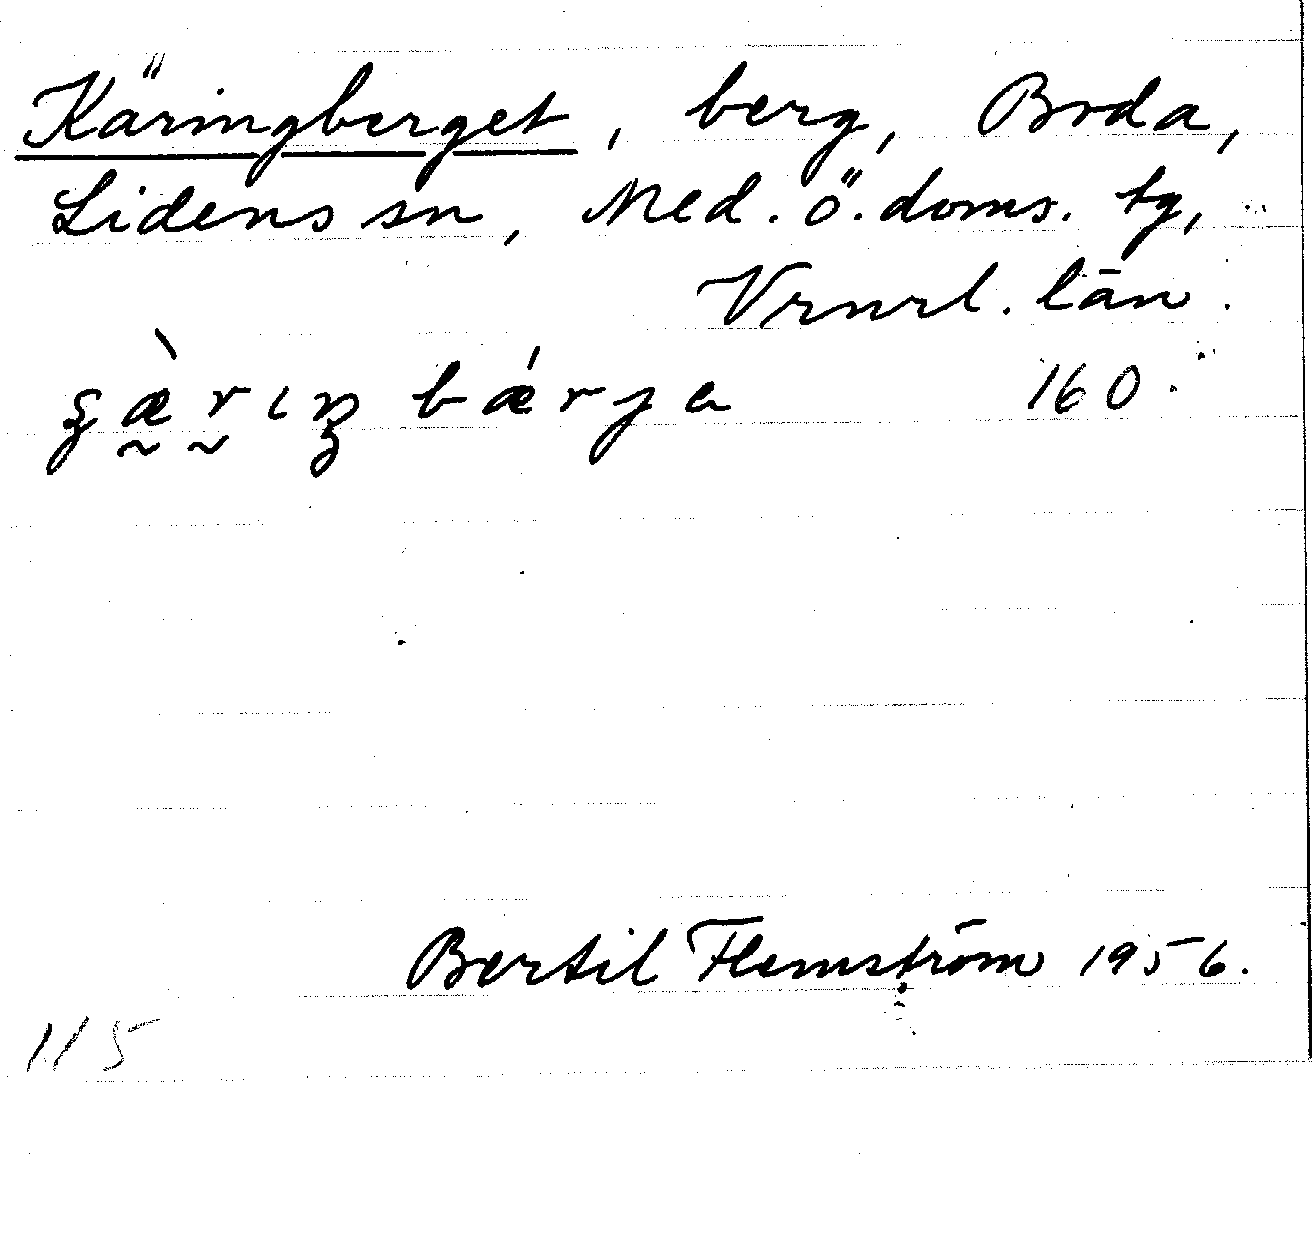 Käringberget, berg, Boda,
Lidens sn, Med. ö. doms. tg,
Vrnrl. län.
160
Bertil Flemström 1956.
115